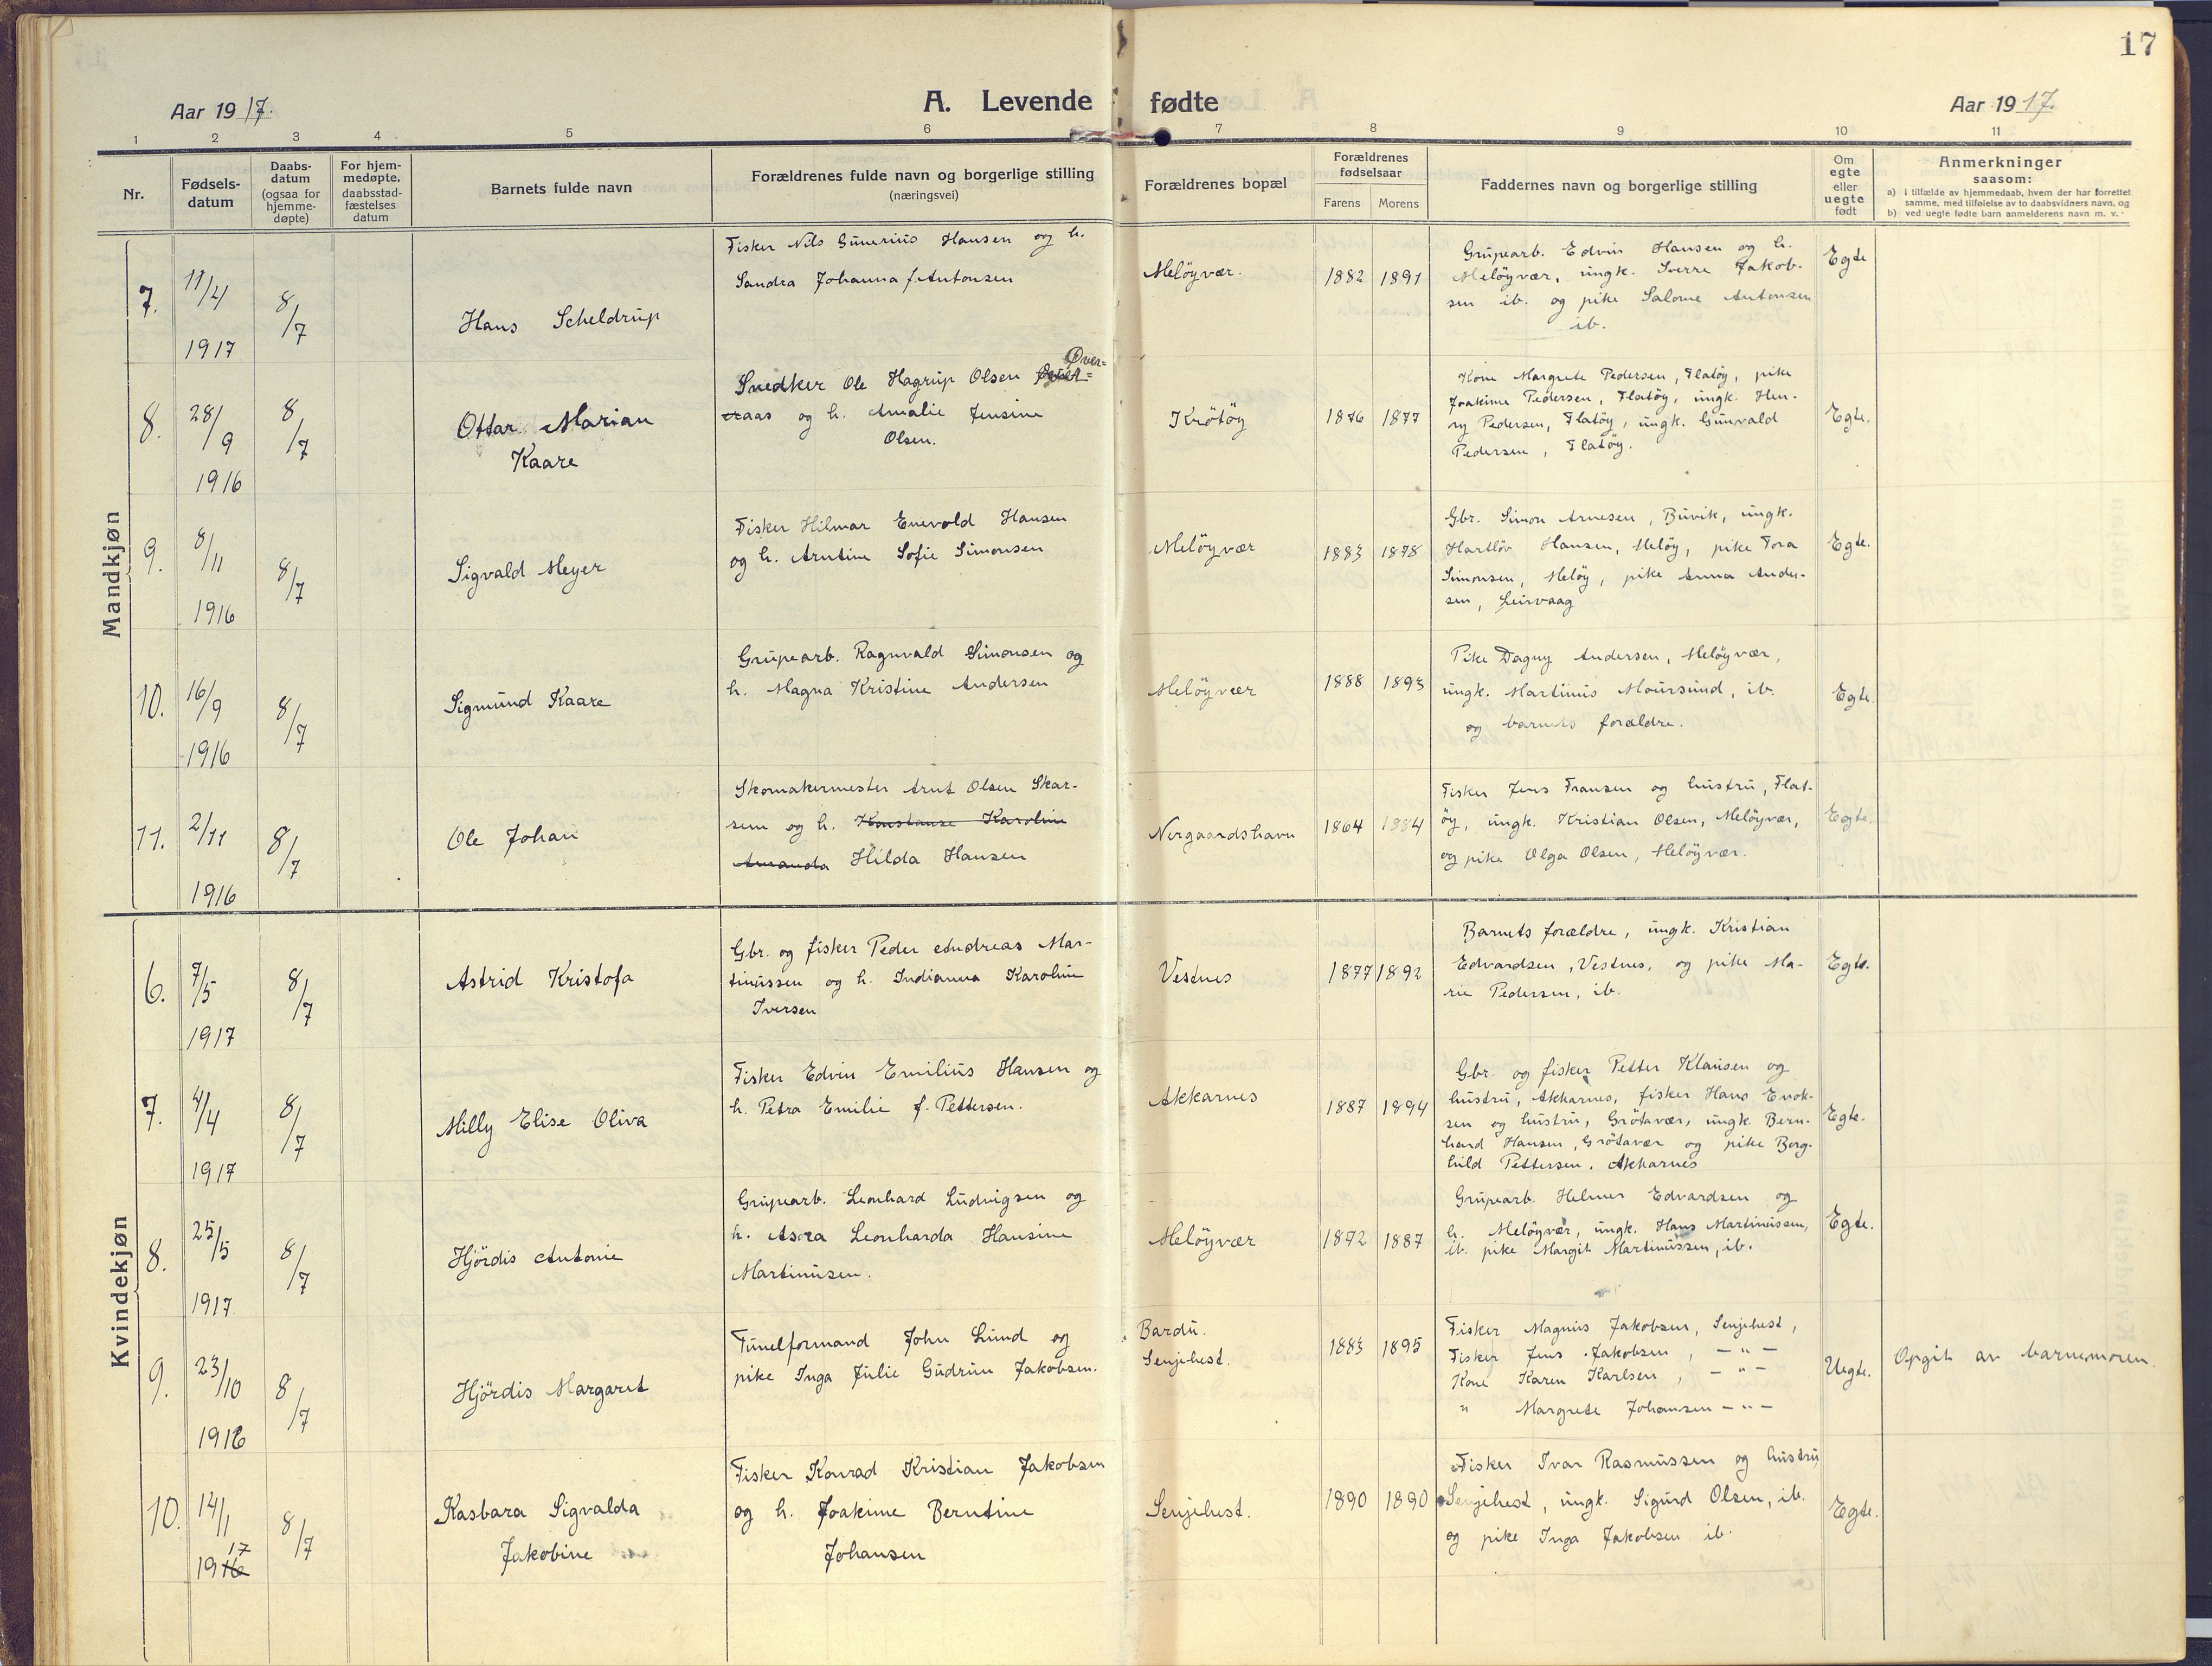 17
Aar 1917.
A. Levende fødte
Aar 1917.
1 2 3 4 5 6 7 8 9 10 11
Nr.
Fødsels-
datum
Daabs-
datum
(ogsaa for
hjemme-
døpte)
For hjem-
medøpte,
daabsstad-
fæstelses
datum
Barnets fulde navn
Forældrenes fulde navn og borgerlige stilling
(næringsvei)
Forældrenes bopæl
Forældrenes
fødselsaar
Farens Morens
Faddernes navn og borgerlige stilling
Om
egte
eller
uegte
født
Anmerkninger
saasom:
a) i tilfælde av hjemmedaab, hvem der har forrettet
samme, med tilføielse av to daabsvidners navn, og
b) ved uegte fødte barn anmelderens navn m. v.
Mandkjøn
7.
11/4
1917
8/7
Hans Scheldrup
Fisker Nils Gunerius Hansen og h.
Sandra Johanna f. Antonsen
Meløyvær.
1882 1891
Grupearb. Edvin Hansen og h.
Meløyvær, ungk. Sverre Jakob-
sen ib. og pike Salome Antonsen
ib.
Egte
8.
28/9
1916
8/7
Ottar Marian
Kaare
Øver-
Snedker Ole Hagrup Olsen
raas og h. Amalie Jensine
Olsen.
Krøtøy
1876 1877
Kone Margrete Pedersen, Flatøy, pike
Joakime Pedersen, Flatøy, ungk. Hen-
ry Pedersen, Flatøy, ungk. Gunvald
Pedersen, Flatøy.
Egte.
9.
8/11
1916
8/7
Sigvald Meyer
Fisker Hilmar Enevold Hansen
og h. Arntine Sofie Simonsen
Meløyvær
1883 1878
Gbr. Simon Arnesen, Buvik, ungk.
Hartløv Hansen, Meløy, pike Tora
Simonsen, Meløy, pike Anna Ander-
sen, Leirvaag
Egte.
10.
16/9
1916
8/7
Sigmund Kaare
Grupearb. Ragnvald Simonsen og
h. Magna Kristine Andersen
Meløyvær
1888 1893
Pike Dagny Andersen, Meløyvær,
ungk. Martinus Moursund, ib.
og barnets forældre.
Egte.
11.
2/11
1916
8/7
Ole Johan
Skomakermester Arnt Olsen Skar-
sem og h. Konstanse Karoline
Amanda Hilda Hansen
Nergaardshavn
1864 1884
Fisker Jens Fransen og hustru, Flat-
øy, ungk. Kristian Olsen, Meløyvær,
og pike Olga Olsen, Meløyvær.
Egte.
Kvindekjøn
6.
7/5
1917
8/7
Astrid Kristofa
Gbr. og fisker Peder Andreas Mar-
tinussen og h. Indianna Karoline
Iversen
Vestnes
1877 1892
Barnets forældre, ungk. Kristian
Edvardsen, Vestnes, og pike Ma-
rie Pedersen, ib.
Egte.
7.
4/4
1917
8/7
Milly Elise Oliva
Fisker Edvin Emilius Hansen og
h. Petra Emilie f. Pettersen.
Akkarnes
1887 1894
Gbr. og fisker Petter Klausen og
hustru, Akkarnes, fisker Hans Enok-
sen og hustru, Grøtavær, ungk. Bern-
hard Hansen, Grøtavær og pike Borg-
hild Pettersen. Akkarnes
Egte.
8.
25/5
1917
8/7
Hjørdis Antonie
Grupearb. Leonhard Ludvigsen og
h. Asora Leonharda Hansine
Martinusen.
Meløyvær
1872 1887
Grupearb. Helmer Edvardsen og
h. Meløyvær, ungk. Hans Martinussen,
ib. pike Margit Martinussen, ib.
Egte.
9.
23/10
1916
8/7
Hjördis Margaret
Tunelformand John Lund og
pike Inga Julie Gudrun Jakobsen.
Bardu.
Senjehest.
1883 1895
Fisker Magnus Jakobsen, Senjehest,
Fisker Jens Jakobsen, — " —
Kone Karen Karlsen, — " —
" Margrete Johansen — " —
Uegte.
Opgit av barnemoren.
10.
14/1
17
1916
8/7
Kasbara Sigvalda
Jakobine
Fisker Konrad Kristian Jakobsen
og h. Joakime Berntine
Johansen
Senjehest.
1890 1890
Fisker Ivar Rasmussen og hustru
Senjehest, ungk. Sigurd Olsen, ib.
og pike Inga Jakobsen ib.
Egte.